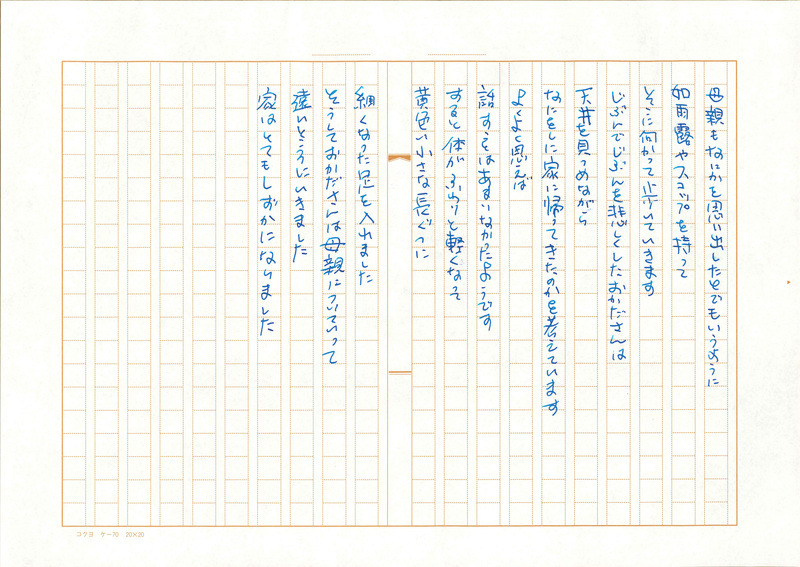 母親もなにかを思い出したとでもいうように
如雨露やスコップを持って
そこに向かって歩いていきます
じぶんでじぶんを悲しくしたおかださんは
天井を見つめながら
なにをしに家に帰ってきたのかを考えています
よくよく思えば
話すことはあまりなかったようです
すると体がふわりと軽くなって
黄色い小さな長ぐつに
細くなった足を入れました
そうしておかださんは母親についていって
遠いところにいきました
家はとてもしずかになりました
コクヨ ケー70 20×20